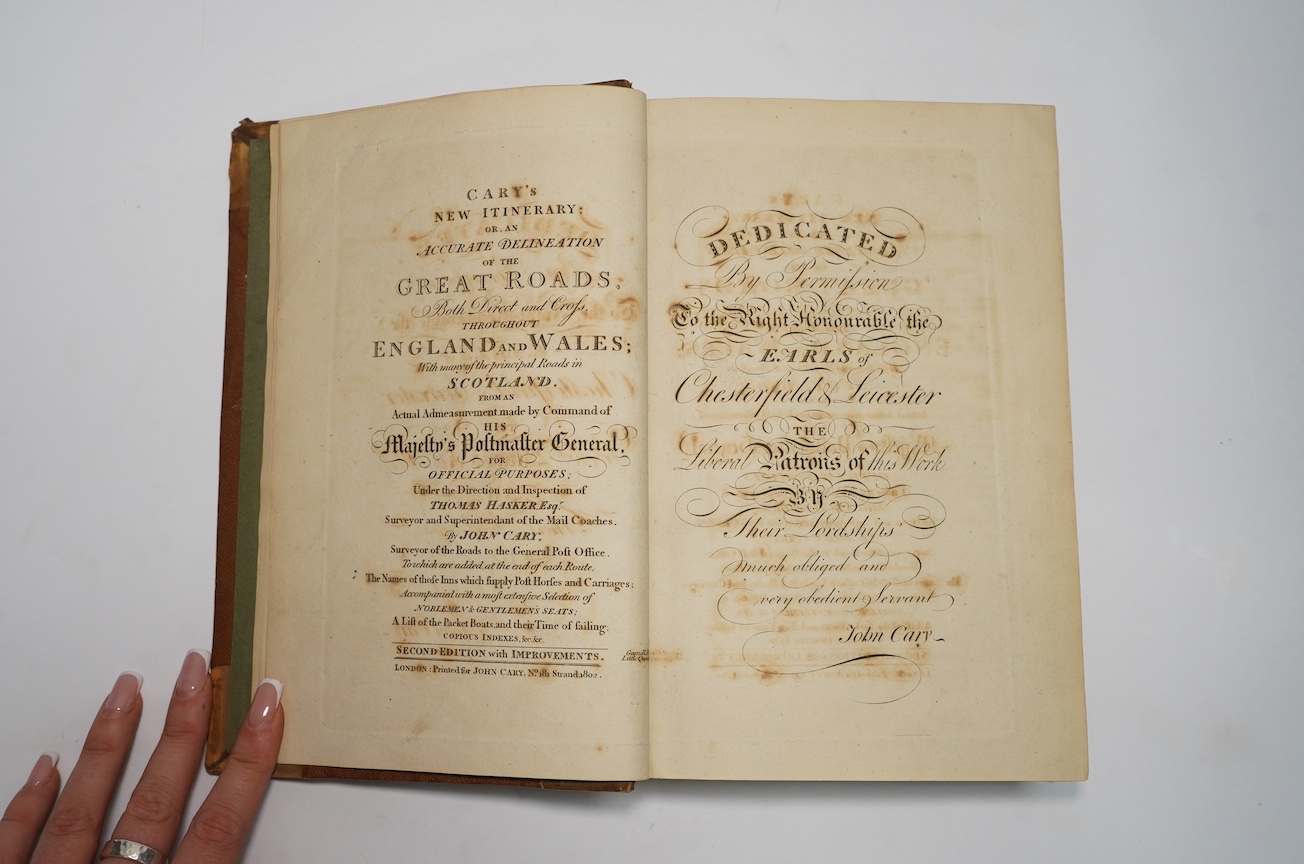 CARY'S
NEW ITINERARY:
OR, AN
ACCURATE DELINEATION
OF THE
GREAT ROADS,
Both Direct and Croſs,
THROUGHOUT
ENGLAND AND WALES;
With many of the principal Roads in
SCOTLAND.
FROM AN
Actual Admeasurement made by Command of
HIS
Majeſty's Poſtmaſter General,
FOR
OFFICIAL PURPOSES;
Under the Direction and Inspection of
THOMAS HASKER Esqr.
Surveyor and Superintendant of the Mail Coaches.
By JOHN CARY,
Surveyor of the Roads to the General Poſt Office.
To which are added, at the end of each Route,
The Names of thoſe Inns which ſupply Poſt Horſes and Carriages;
Accompanied with a moſt extenſive Selection of
NOBLEMEN & GENTLEMENS SEATS;
A Liſt of the Packet Boats, and their Time of ſailing;
COPIOUS INDEXES, &c. &c.
SECOND EDITION with IMPROVEMENTS.
LONDON: Printed for JOHN CARY, No. 181 Strand, 1802.
DEDICATED
By Permiſsion
To the Right Honourable the
EARLS of
Chesterfield & Leicester
THE
Liberal Patrons of this Work
BY
Their Lordships'
much obliged and
very obedient Servant
John Cary